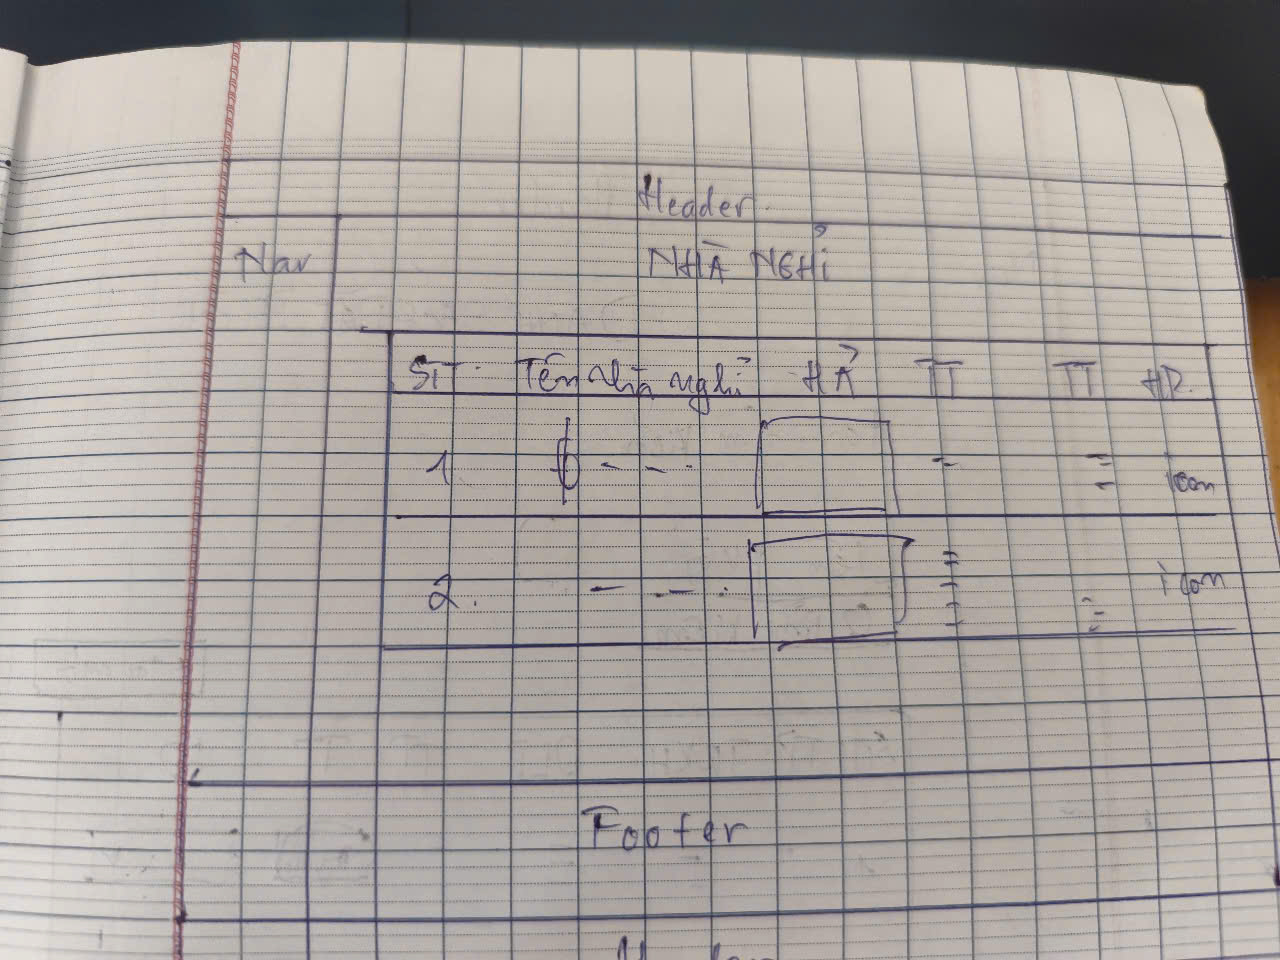 Header
Nav NHÀ NGHỈ
STT Tên nhà nghỉ HẢ TT TT HĐ
1 icon
2. icon
Footer